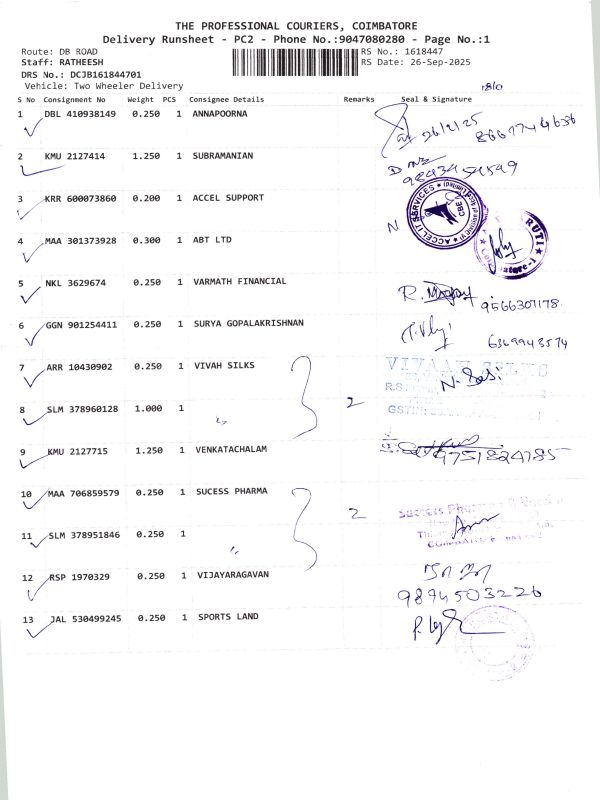 THE PROFESSIONAL COURIERS, COIMBATORE
Delivery Runsheet - PC2 - Phone No.:9047080280 - Page No.:1
Route: DB ROAD RS No.: 1618447
Staff: RATHEESH RS Date: 26-Sep-2025
DRS No.: DCJB161844701
Vehicle: Two Wheeler Delivery
S No Consignment No Weight PCS Consignee Details Remarks Seal & Signature
1 DBL 410938149 0.250 1 ANNAPOORNA
2 KMU 2127414 1.250 1 SUBRAMANIAN
3 KRR 600073860 0.200 1 ACCEL SUPPORT
ACCEL IT SERVICES
4 MAA 301373928 0.300 1 ABT LTD
5 NKL 3629674 0.250 1 VARMATH FINANCIAL
9566301178
6 GGN 901254411 0.250 1 SURYA GOPALAKRISHNAN
6369943574
7 ARR 10430902 0.250 1 VIVAH SILKS
VIVAAH SILKS
8 SLM 378960128 1.000 1 2
9 KMU 2127715 1.250 1 VENKATACHALAM
9751824785
10 MAA 706859579 0.250 1 SUCESS PHARMA
2
11 SLM 378951846 0.250 1
12 RSP 1970329 0.250 1 VIJAYARAGAVAN
9894503226
13 JAL 530499245 0.250 1 SPORTS LAND